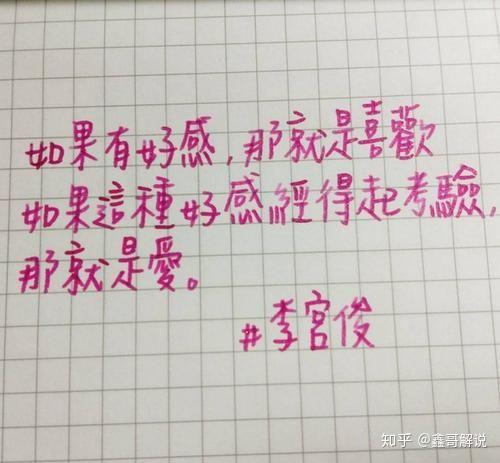 如果有好感,那就是喜歡
如果這種好感經得起考驗,
那就是愛。
#李宮俊
知乎 @鑫哥解说